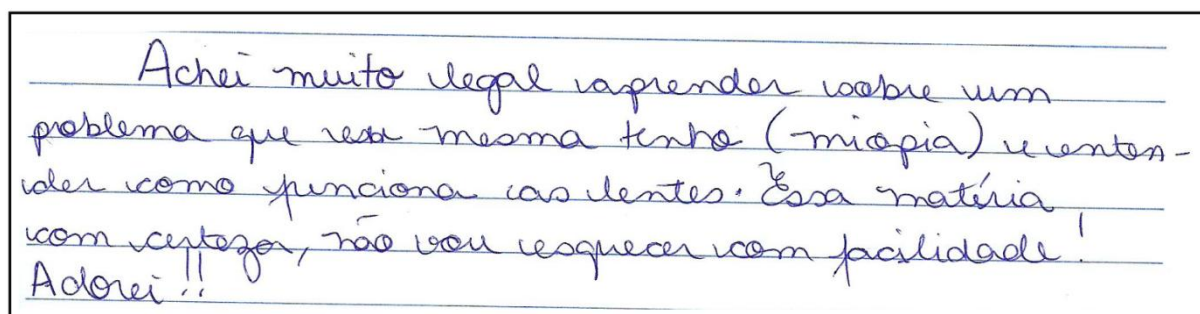 Achei muito legal aprender sobre um
problema que eu mesma tenho (miopia) e enten-
der como funciona as lentes. Essa matéria
com certeza, não vou esquecer com facilidade!
Adorei!!